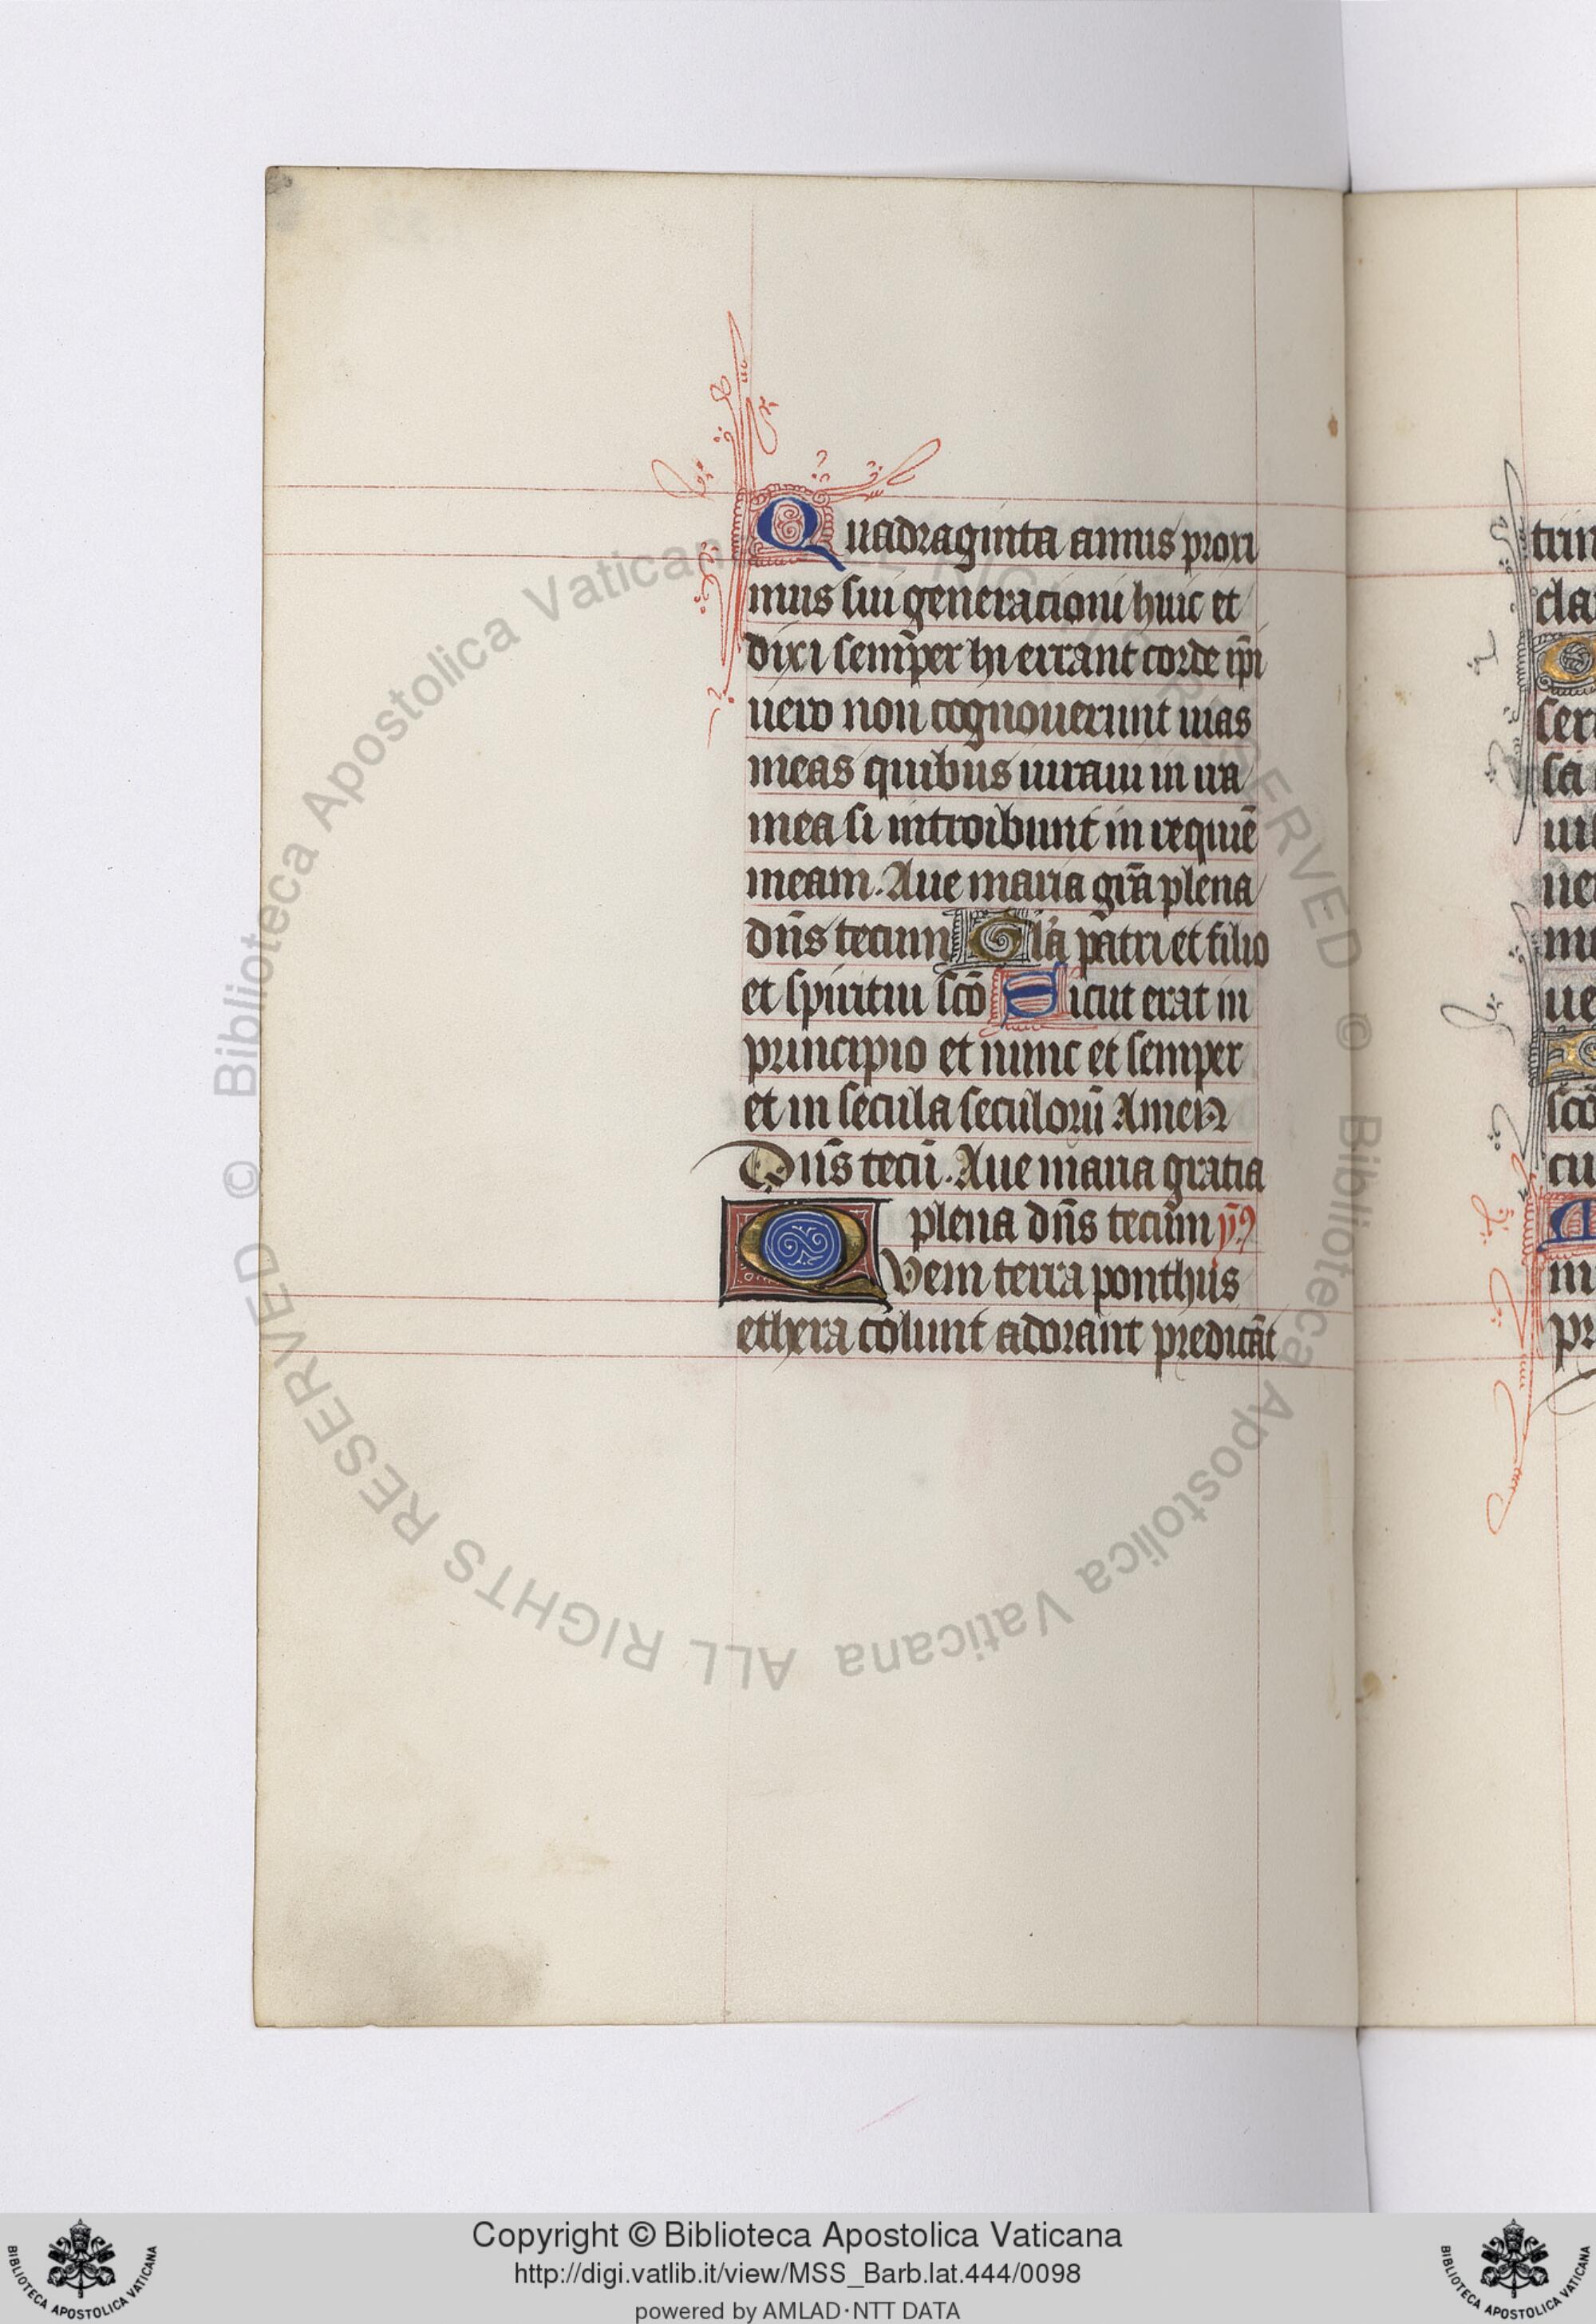 Quadraginta annis proxi
mus fui generationi huic et
dixi semp̄er hi errant corde ip̄i
uero non cognouerunt uias
meas quibus iuraui in ira
mea si introibunt in requiē
meam. Aue maria gr̄a plena
dn̄s tecum Gl̄a pātri et filio
et spiritui sc̄o Sicut erat in
principio et nunc et semper
et in secula seculorū Amen
Dn̄s tecū. Aue maria gratia
plena dn̄s tecum ỹ9
QVem terra ponthus
ethera colunt adorant predicāt
trin
cla
ser
uer
ue
sco
cu
pr
© Biblioteca Apostolica Vaticana ALL RIGHTS RESERVED © Biblioteca Apostolica Vaticana ALL RIGHTS RESERVED
Copyright © Biblioteca Apostolica Vaticana
http://digi.vatlib.it/view/MSS_Barb.lat.444/0098
powered by AMLAD·NTT DATA
BIBLIOTECA APOSTOLICA VATICANA
BIBLIOTECA APOSTOLICA VATICANA